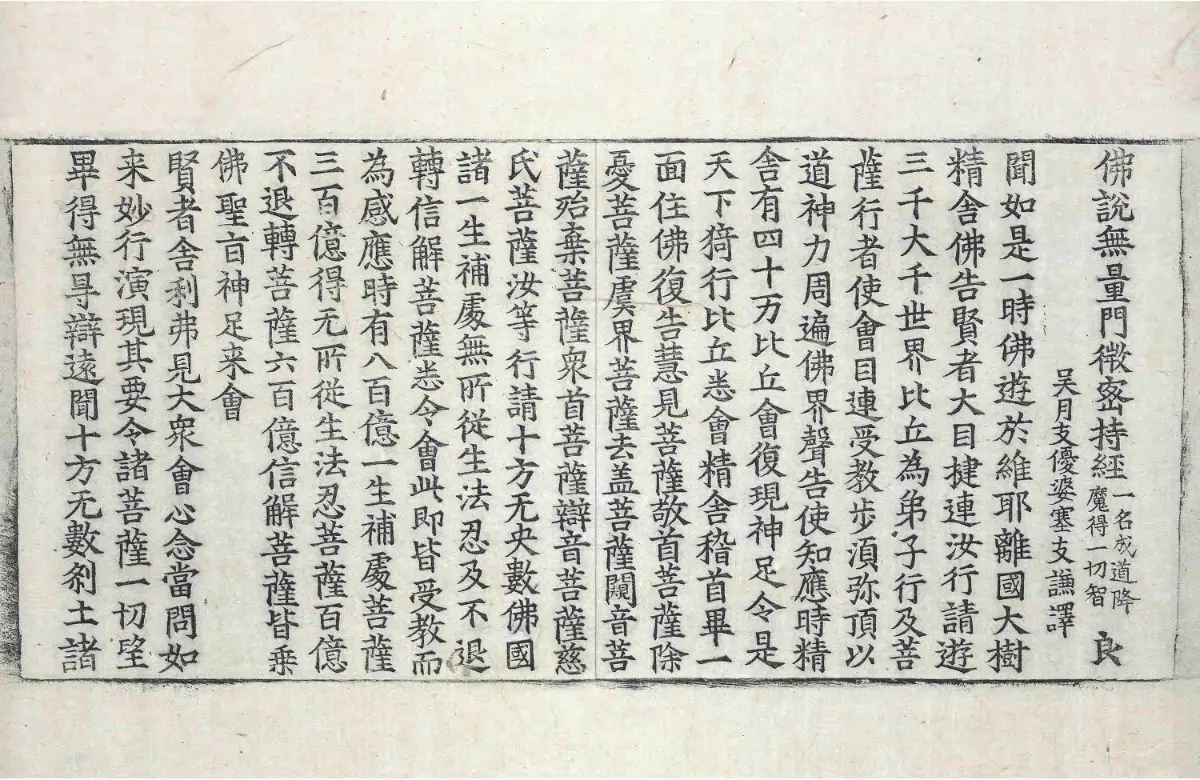 佛說無量門微密持經 一名成道降魔得一切智 良
吳月支優婆塞支謙譯
聞如是一時佛遊於維耶離國大樹
精舍佛告賢者大目揵連汝行請遊
三千大千世界比丘為弟子行及菩
薩行者使會目連受教步湏弥頂以
道神力周遍佛界聲告使知應時精
舍有四十万比丘會復現神足令是
天下猗行比丘悉會精舍稽首畢一
面住佛復告慧見菩薩敬首菩薩除
憂菩薩虞界菩薩去盖菩薩闚音菩
薩殆棄菩薩衆首菩薩辯音菩薩慈
氏菩薩汝等行請十方无央數佛國
諸一生補處無所從生法忍及不退
轉信解菩薩悉令會此即皆受教而
為感應時有八百億一生補處菩薩
三百億得无所從生法忍菩薩百億
不退轉菩薩六百億信解菩薩皆乗
佛聖旨神足来會
賢者舍利弗見大衆會心念當問如
来妙行演現其要令諸菩薩一切望
畢得無㝵辯遠聞十方无數刹土諸